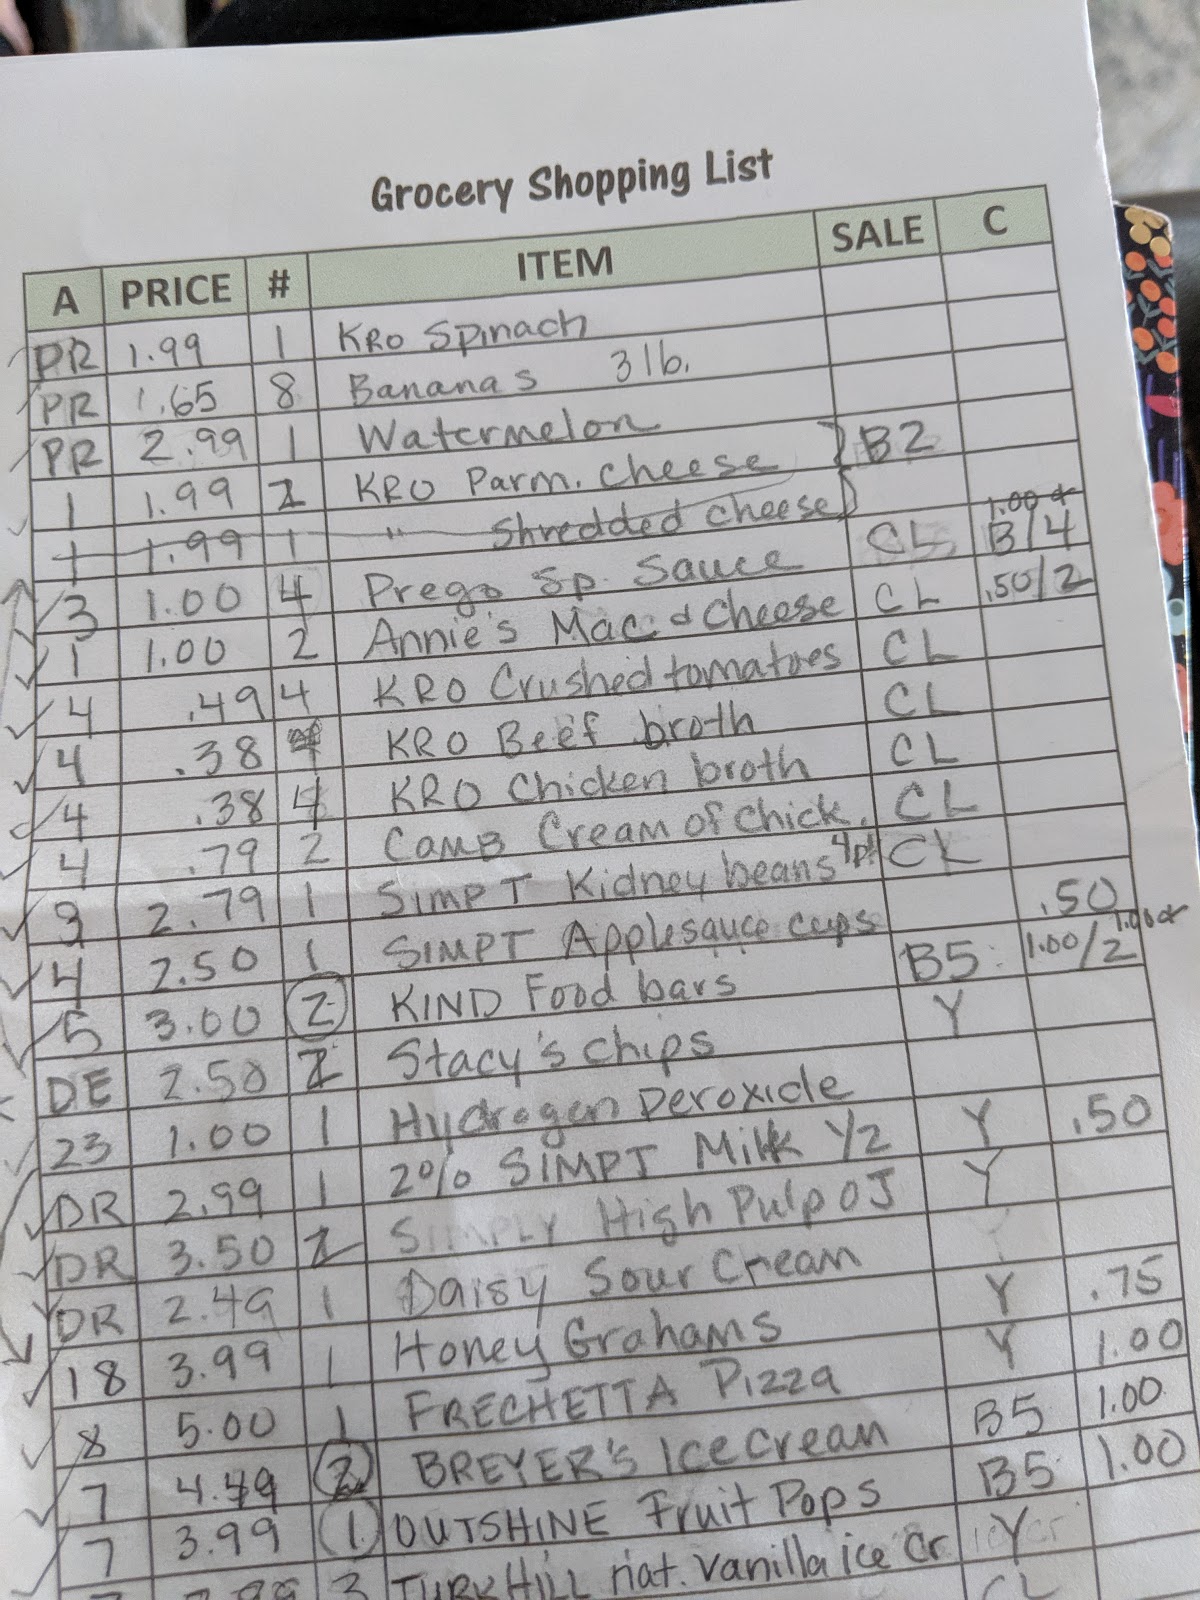 Grocery Shopping List
A PRICE # ITEM SALE C
PR 1.99 1 KRO Spinach
PR 1.65 8 Bananas 3 lb.
PR 2.99 1 Watermelon
1 1.99 2 KRO Parm. Cheese } B2
1 1.99 1 " Shredded cheese
3 1.00 4 Prego Sp. Sauce CL 1.00 or B/4
1 1.00 2 Annie's Mac & Cheese CL .50/2
4 .49 4 KRO Crushed tomatoes CL
4 .38 KRO Beef broth CL
4 .38 4 KRO Chicken broth CL
4 .79 2 CAMB Cream of Chick. CL
3 2.79 1 SIMPT Kidney beans 4pk CL
4 2.50 1 SIMPT Applesauce cups .50
5 3.00 2 KIND Food bars B5 1.00/2 1.00 or
DE 2.50 2 Stacy's chips Y
23 1.00 1 Hydrogen peroxide
DR 2.99 1 2% SIMPT Milk 1/2 Y .50
DR 3.50 2 SIMPLY High Pulp OJ Y
DR 2.49 1 Daisy Sour Cream
18 3.99 1 Honey Grahams Y .75
8 5.00 1 FRECHETTA Pizza Y 1.00
7 4.49 2 BREYER'S Ice Cream B5 1.00
7 3.99 1 OUTSHINE Fruit Pops B5 1.00
3 TURKHILL nat. vanilla ice cr Y
CL